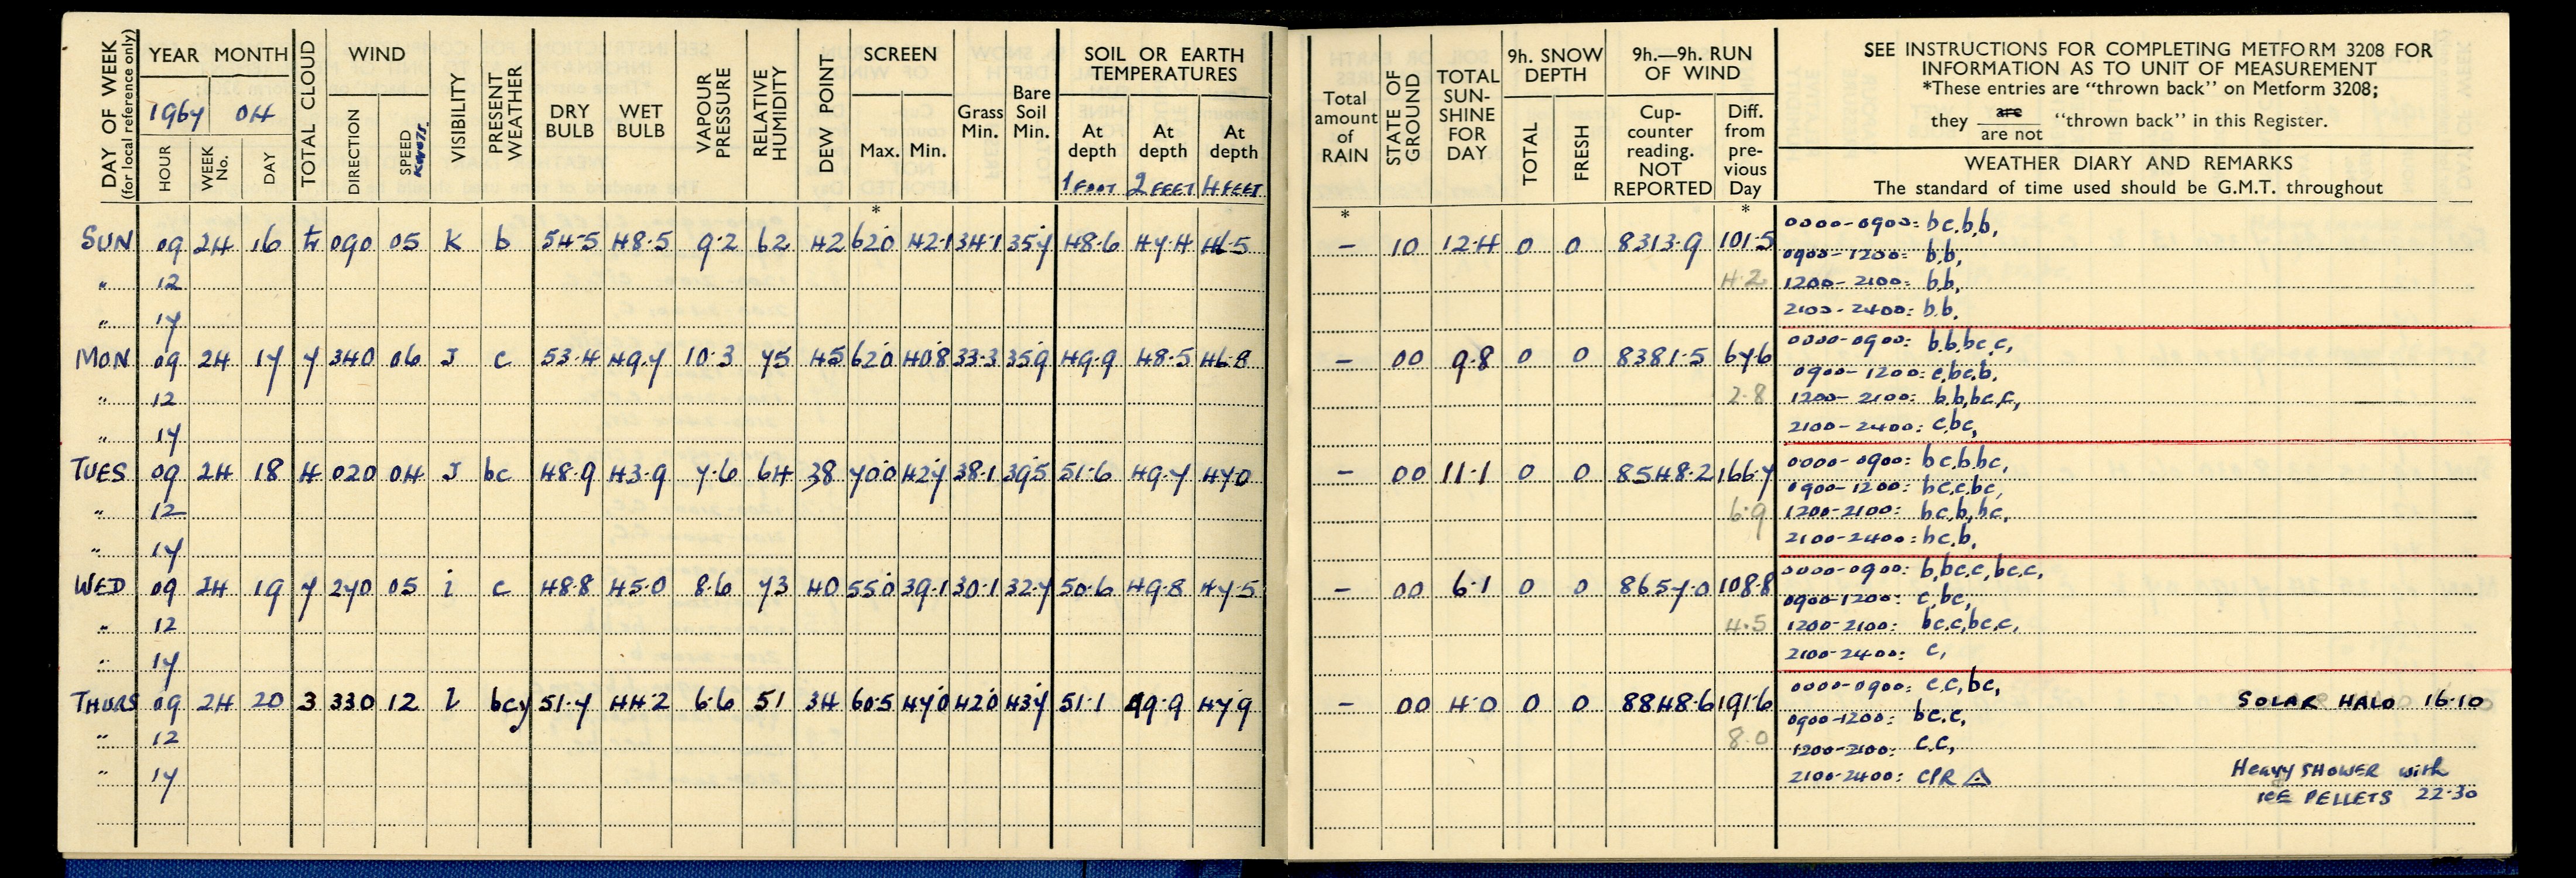 DAY OF WEEK
(for local reference only)
YEAR MONTH
1967 04
HOUR
WEEK No.
DAY
TOTAL CLOUD
WIND
DIRECTION
SPEED KNOTS
VISIBILITY
PRESENT WEATHER
DRY BULB
WET BULB
VAPOUR PRESSURE
RELATIVE HUMIDITY
DEW POINT
SCREEN
Max. Min.
Grass Min.
Bare Soil Min.
SOIL OR EARTH TEMPERATURES
At depth At depth At depth
1 FOOT 2 FEET 4 FEET
Total amount of RAIN
STATE OF GROUND
TOTAL SUN-SHINE FOR DAY
9h. SNOW DEPTH
TOTAL
FRESH
9h.—9h. RUN OF WIND
Cup-counter reading. NOT REPORTED
Diff. from pre-vious Day
SEE INSTRUCTIONS FOR COMPLETING METFORM 3208 FOR
INFORMATION AS TO UNIT OF MEASUREMENT
*These entries are "thrown back" on Metform 3208;
they are / are not "thrown back" in this Register.
WEATHER DIARY AND REMARKS
The standard of time used should be G.M.T. throughout
* * *
SUN 09 24 16 tr 090 05 K b 54.5 48.5 9.2 62 42 62.0 42.1 34.1 35.7 48.6 47.4 46.5 – 10 12.4 0 0 8313.9 101.5 0000-0900: bc,b,b,
0900-1200: b,b,
" 12 4.2 1200-2100: b,b,
" 17 2100-2400: b,b,
MON 09 24 17 7 340 06 J c 53.4 49.7 10.3 75 45 62.0 40.8 33.3 35.9 49.9 48.5 46.8 – 00 9.8 0 0 8381.5 67.6 0000-0900: b,b,bc,c,
0900-1200: c,bc,b,
" 12 2.8 1200-2100: b,b,bc,c,
" 17 2100-2400: c,bc,
TUES 09 24 18 4 020 04 J bc 48.9 43.9 7.6 64 38 70.0 42.7 38.1 39.5 51.6 49.7 47.0 – 00 11.1 0 0 8548.2 166.7 0000-0900: bc,b,bc,
0900-1200: bc,c,bc,
" 12 6.9 1200-2100: bc,b,bc,
" 17 2100-2400: bc,b,
WED 09 24 19 7 270 05 i c 48.8 45.0 8.6 73 40 55.0 39.1 30.1 32.7 50.6 49.8 47.5 – 00 6.1 0 0 8657.0 108.8 0000-0900: b,bc,c,bc,c,
0900-1200: c,bc,
" 12 4.5 1200-2100: bc,c,bc,c,
" 17 2100-2400: c,
THURS 09 24 20 3 330 12 l bcy 51.7 44.2 6.6 51 34 60.5 47.0 42.0 43.7 51.1 49.9 47.9 – 00 4.0 0 0 8848.6 191.6 0000-0900: c,c,bc, SOLAR HALO 16.10
0900-1200: bc,c,
" 12 8.0 1200-2100: c,c,
" 17 2100-2400: CPR △ Heavy SHOWER with
ICE PELLETS 22.30